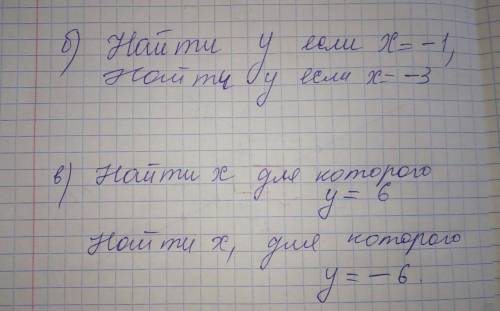 б) Найти у если х = -1,
Найти у если х = -3
в) Найти х для которого
у = 6
Найти х, для которого
у = -6.